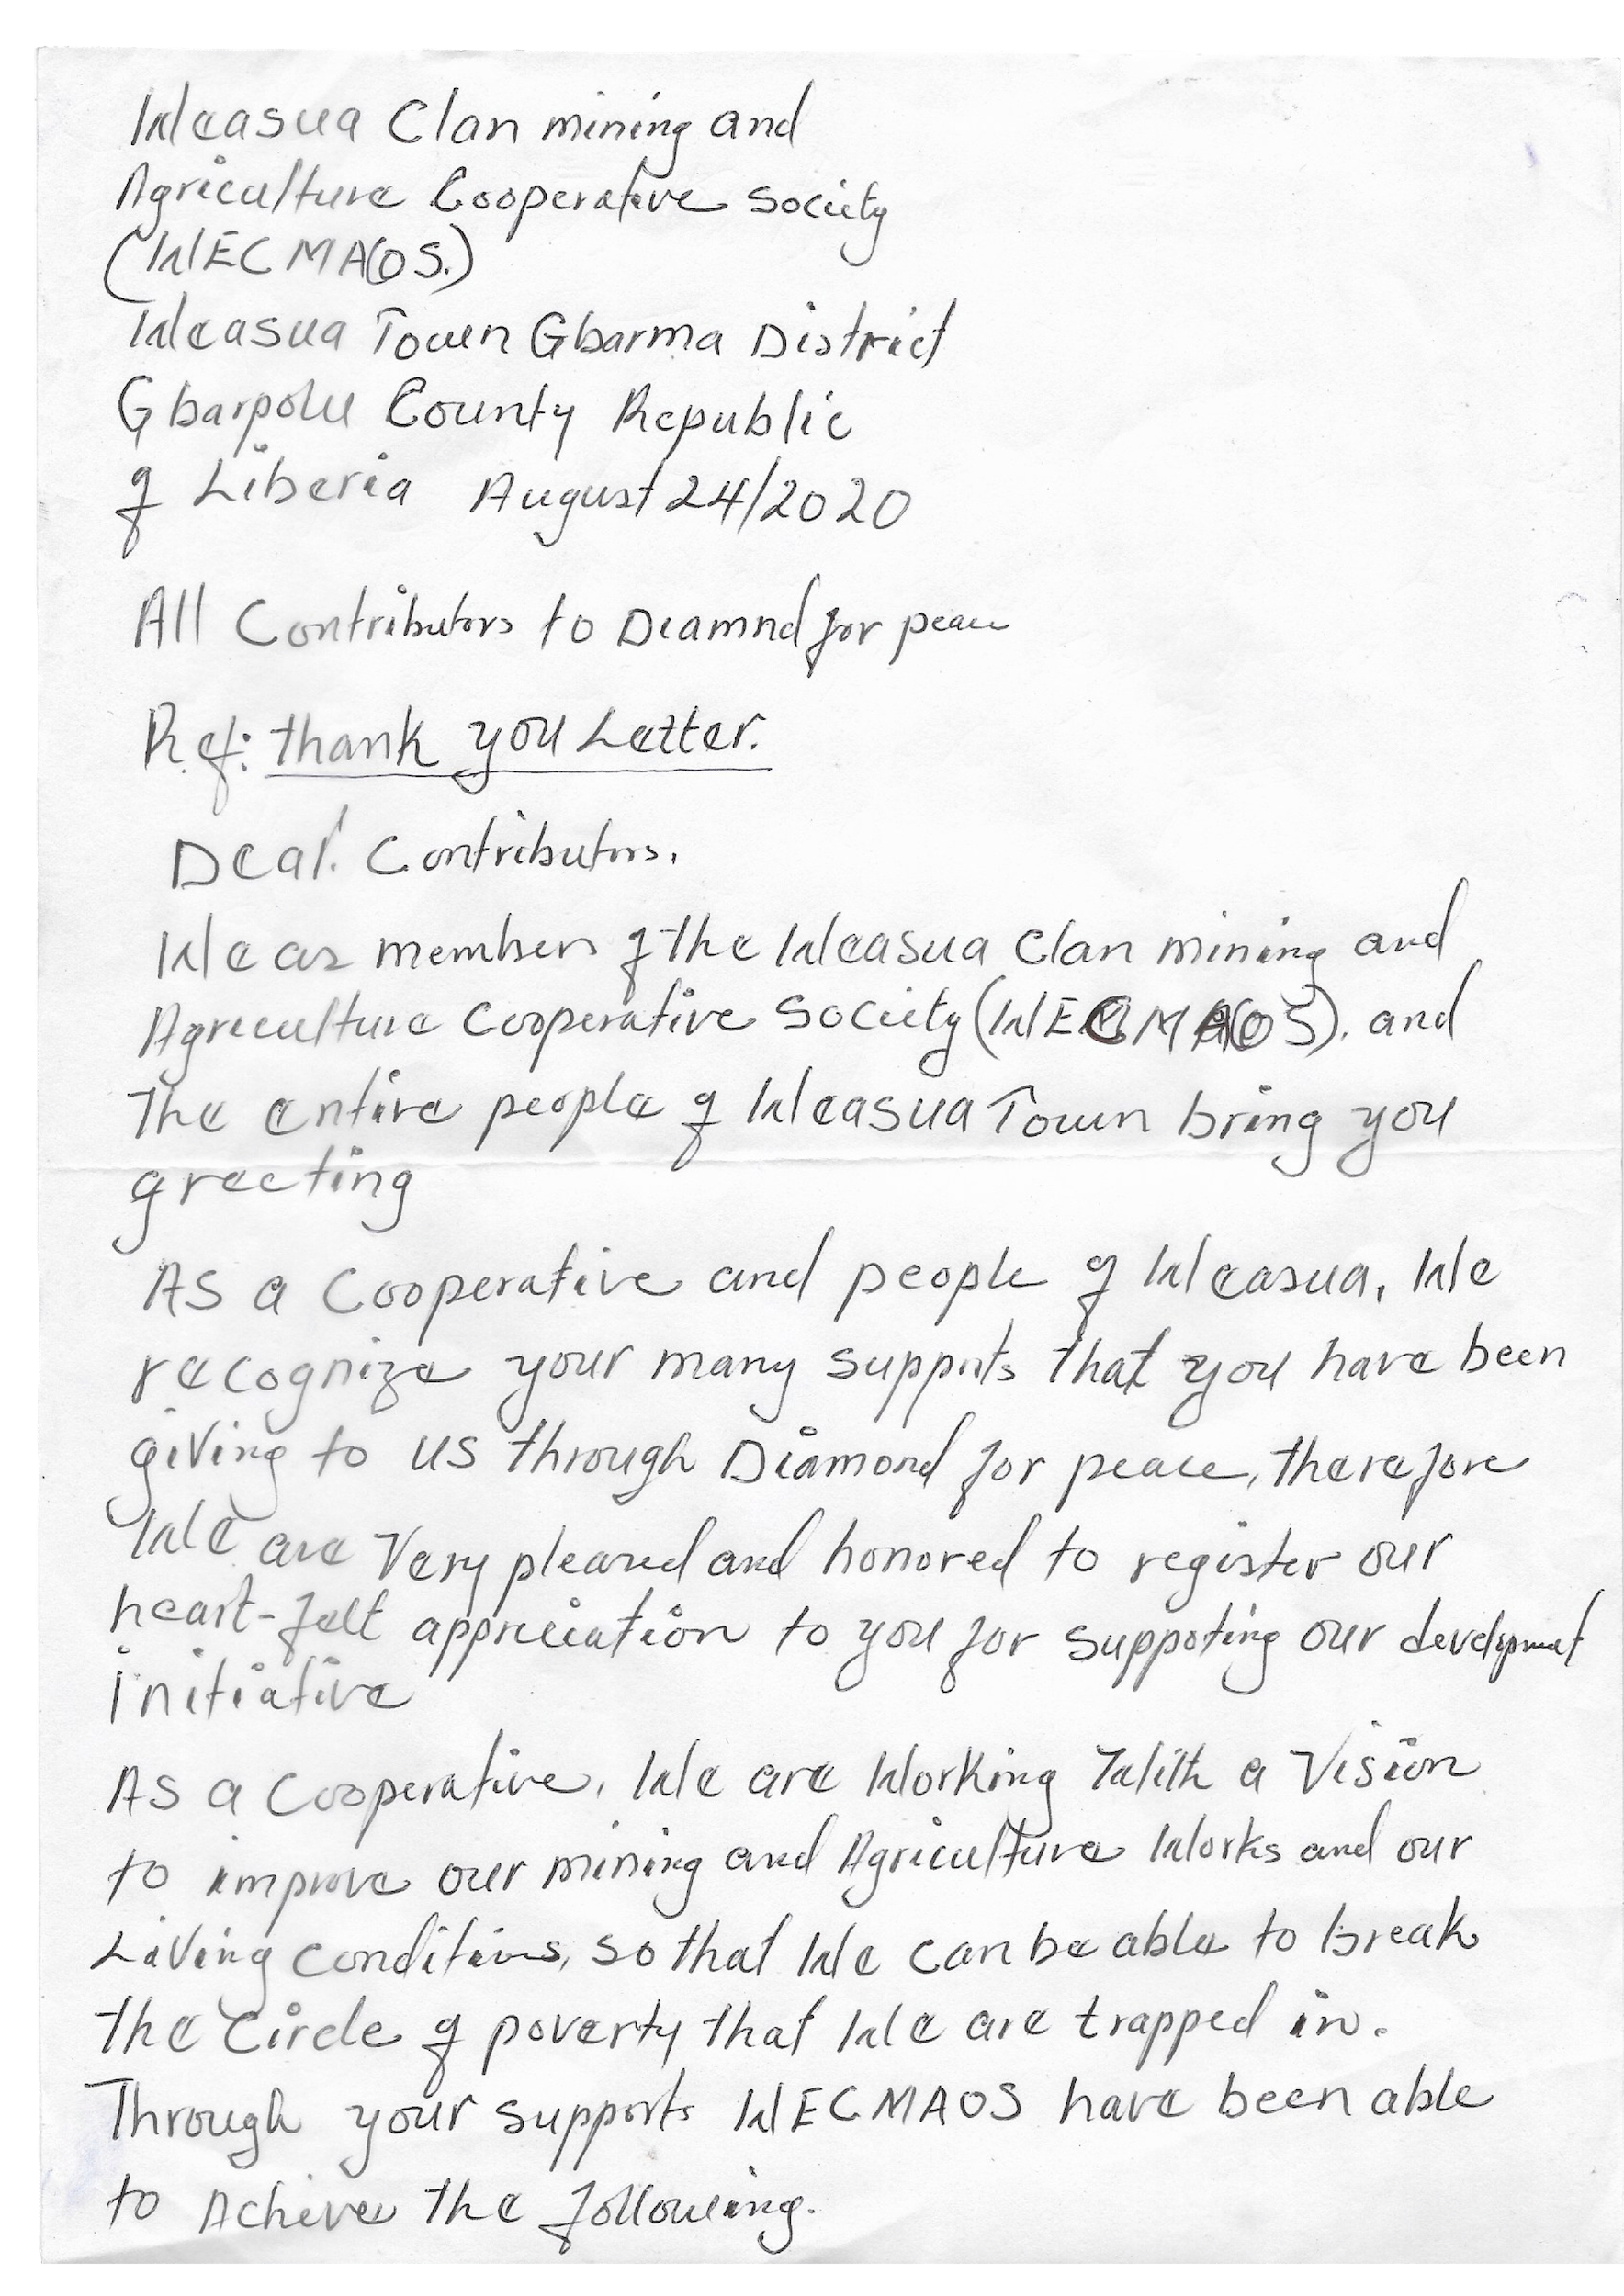 Weasua Clan mining and
Agriculture Cooperative Society
(WECMACOS.)
Weasua Town Gbarma District
Gbarpolu County Republic
of Liberia August 24/2020
All Contributors to Diamnd for peace
Ref: thank you Letter.
Dear. Contributors.
We as members of the Weasua Clan mining and
Agriculture Cooperative Society (WECMACOS). and
The entire people of Weasua Town bring you
greeting
As a Cooperative and people of Weasua, We
recognize your many supports that you have been
giving to us through Diamond for peace, therefore
We are Very pleased and honored to register our
heart-felt appreciation to you for suppoting our development
initiative
As a Cooperative, We are Working With a Vision
to improve our mining and Agriculture Works and our
Living conditions, so that We can be able to break
the Circle of poverty that We are trapped in.
Through your supports WECMAOS have been able
to Achive the following.